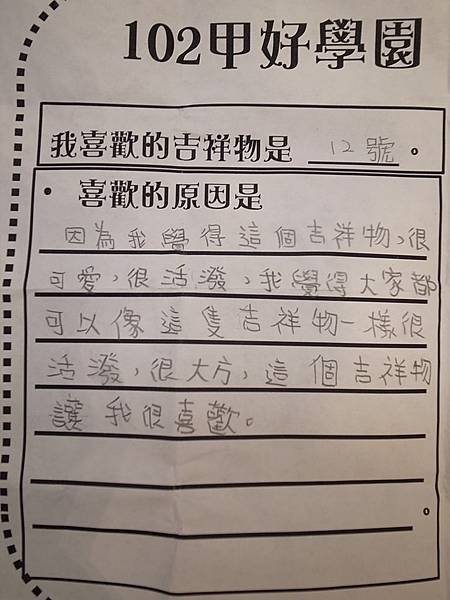 102甲好學園
我喜歡的吉祥物是 12號。
• 喜歡的原因是
因為我覺得這個吉祥物,很
可愛,很活潑,我覺得大家都
可以像這隻吉祥物一樣很
活潑,很大方,這個吉祥物
讓我很喜歡。
。